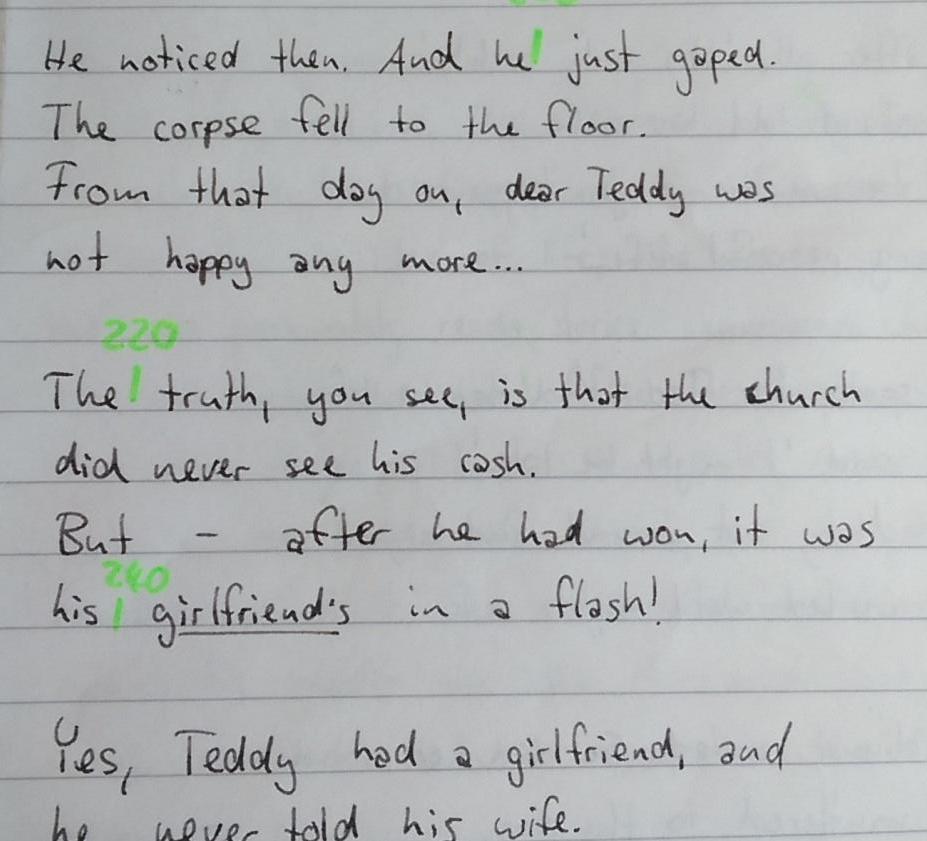 He noticed then. And he just gaped.
The corpse fell to the floor.
From that day on, dear Teddy was
not happy any more...
220
The truth, you see, is that the church
did never see his cash.
But - after he had won, it was
240
his girlfriend's in a flash!
Yes, Teddy had a girlfriend, and
he never told his wife.